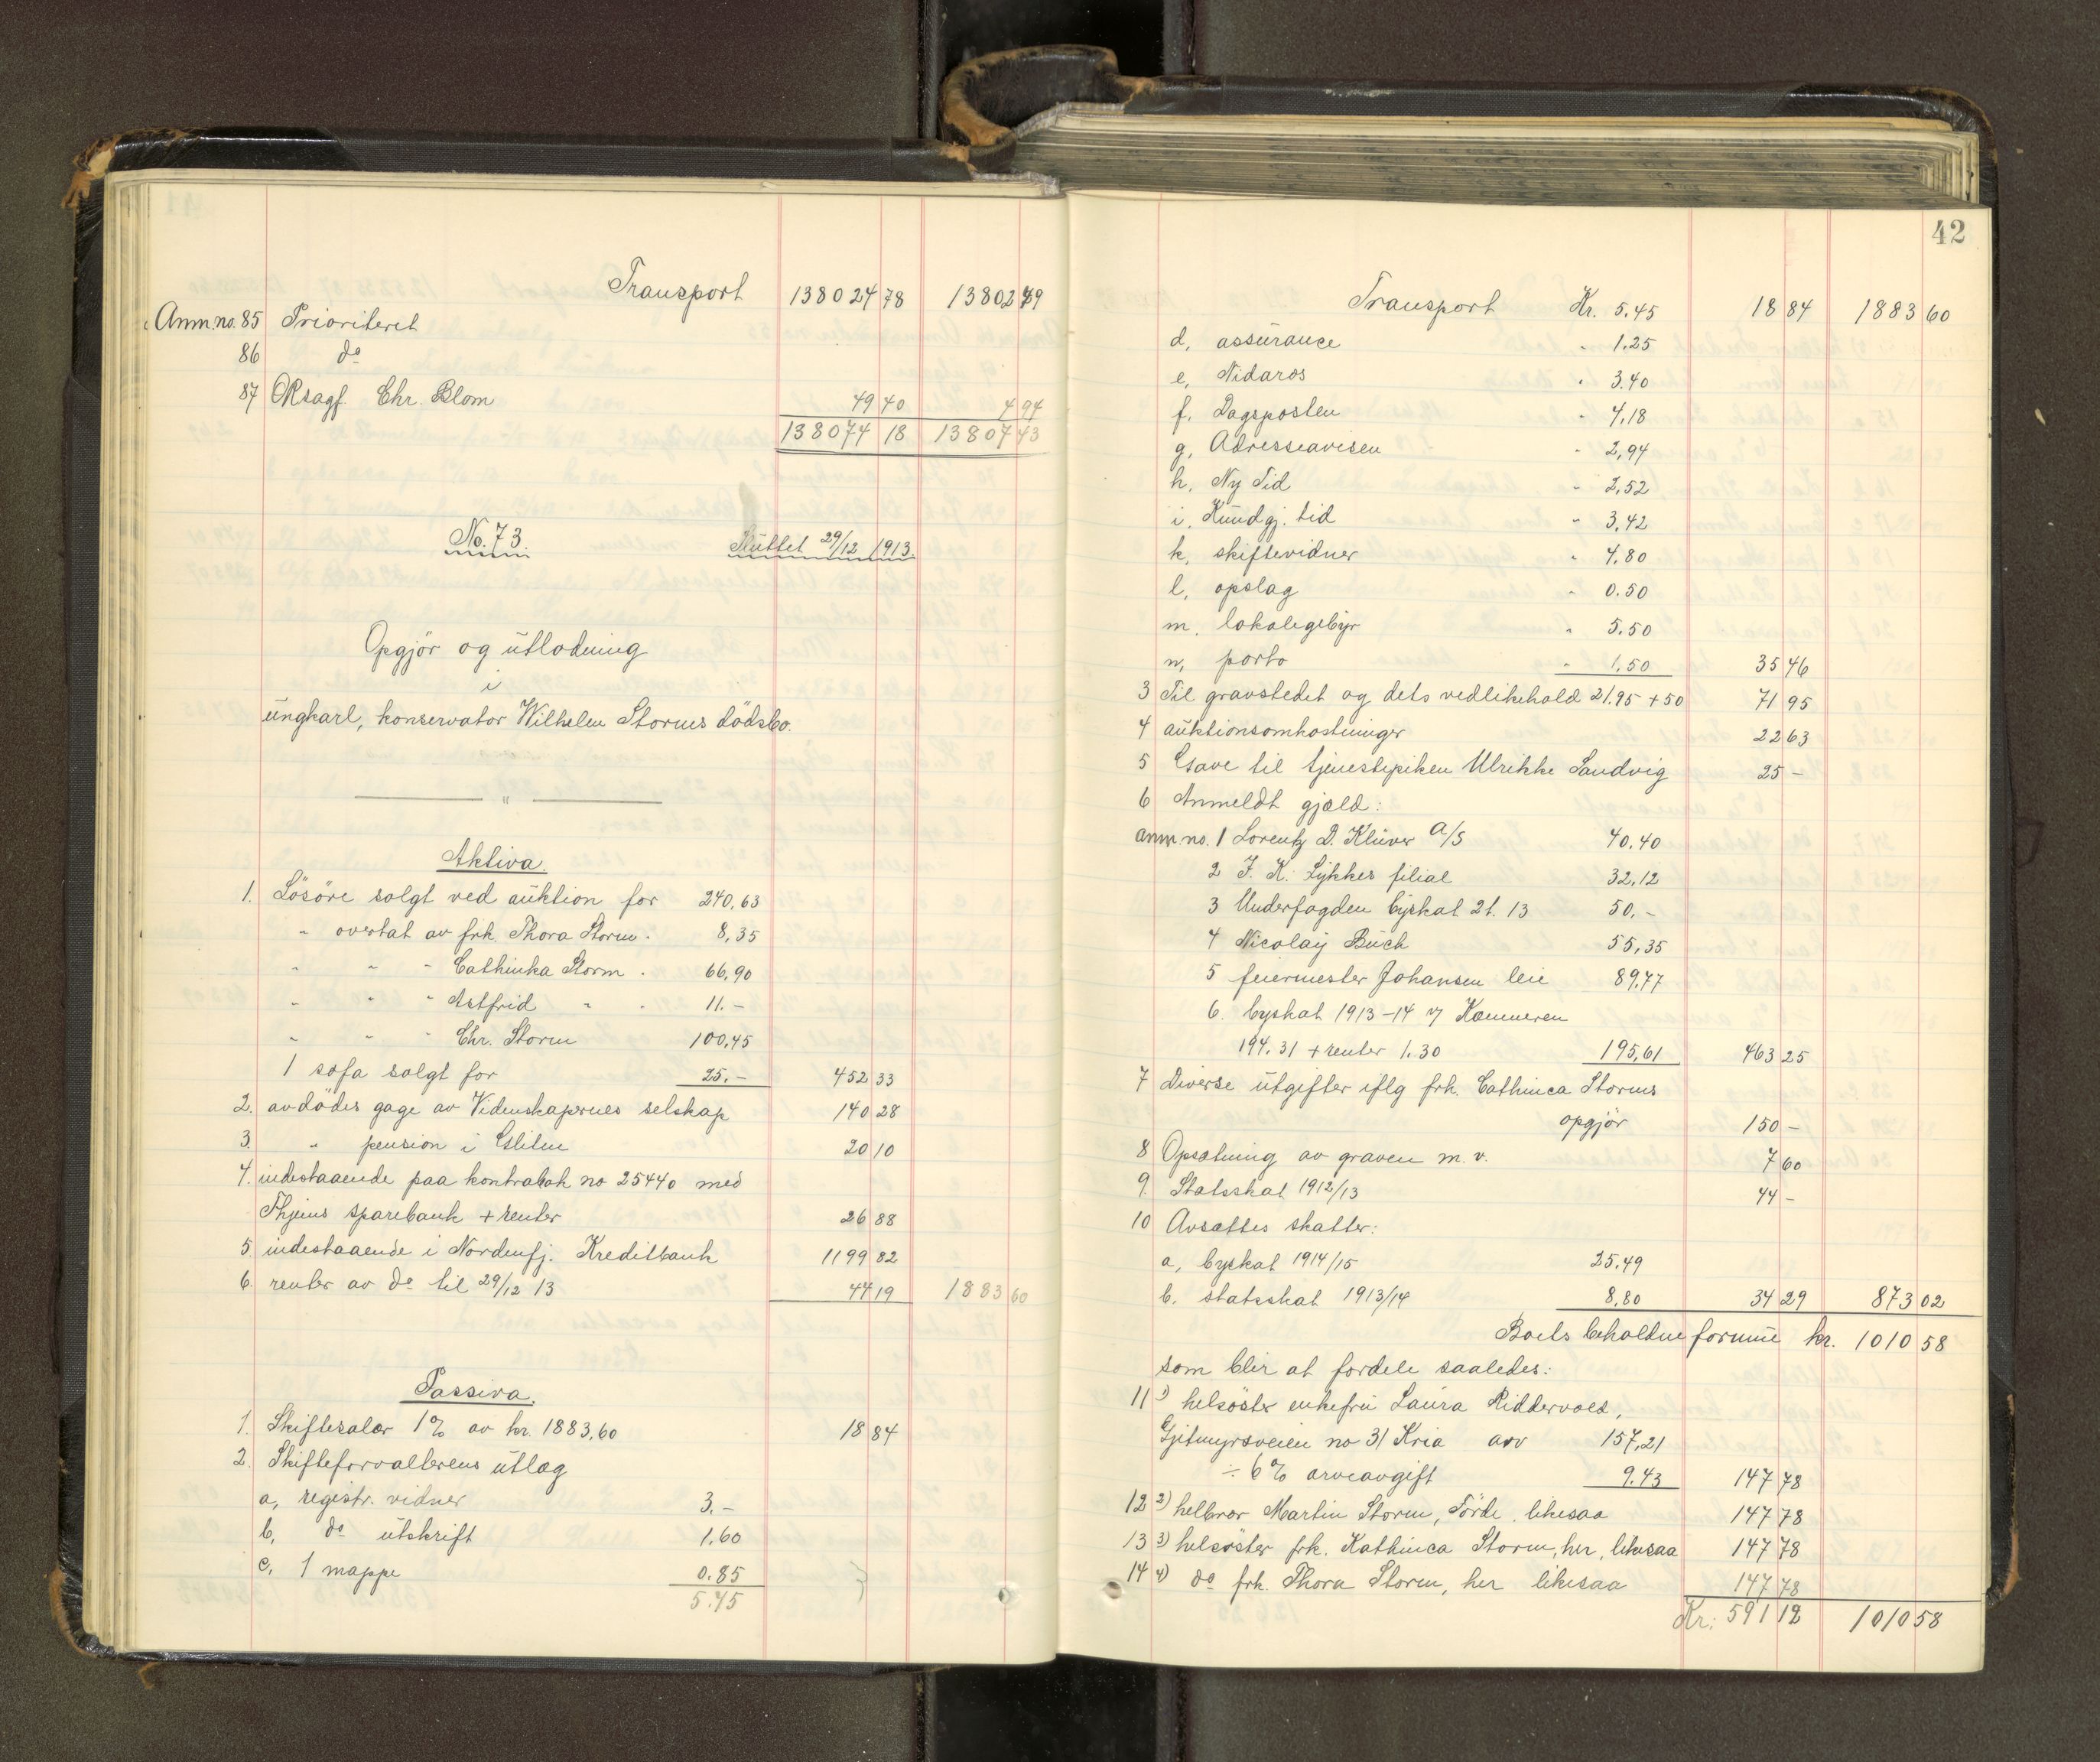 Transport 138024 78 13802 49
Anm. no. 85 Prioriteret
86 do
87 ORsagf. Chr. Blom 49 40 4 94
138074 18 13807 43
No. 73. Sluttet 29/12 1913.
Opgjör og utlodning
i
ungkarl, konservator Wilhelm Storms dödsbo.
"
Aktiva.
1. Lösöre solgt ved auktion for 240,63
" overtat av frk. Thora Storm " 8,35
" " " Cathinka Storm " 66,90
" " " Astfrid " " 11.-
" " " Chr. Storm 100,45
1 sofa solgt for 25.- 452 33
2. avdödes gage av Videnskapernes selskap 140 28
3. " pension i Eliten 20 10
4. indestaaende paa kontrabok no 25440 med
Thjems sparebank + renter 26 88
5. indestaaende i Nordenfj. Kreditbank 1199 82
6. renter av do til 29/12 13 44 19 1883 60
Passiva.
1. Skiftesalær 1% av kr. 1883,60 18 84
2. Skifteforvalterens utlæg
a, registr. vidner 3,-
b, do utskrift 1.60
c, 1 mappe 0.85
5.45
42
Transport Kr. 5.45 18 84 1883 60
d, assurance " 1.25
e, Nidaros " 3.40
f, Dagsposten " 4,18
g, Adresseavisen " 2,94
h, Ny Tid " 2,52
i, Kundgj. tid " 3,42
k, skiftevidner " 4,80
l, opslag " 0.50
m, lokalegebyr " 5.50
n, porto " 1,50 35 46
3 Til gravstedet og dets vedlikehold 21.95 + 50 71 95
4 auktionsomkostninger 22 63
5 Gave til tjenestepiken Ulrikke Sandvig 25 -
6 Anmeldt gjæld:
anm. no. 1 Lorentz D. Klüver A/S 40.40
2 J. K. Lykkes filial 32,12
3 Underfogden byskat 2t. 13 50,-
4 Nicolay Buch 55,35
5 feiermester Johansen leie 89,77
6. byskat 1913-14 Kæmneren
194.31 + renter 1.30 195,61 463 25
7 Diverse utgifter iflg frk. Cathinca Storms
opgjör 150 -
8 Opsætning av graven m. v. 7 60
9. Statsskat 1912/13 44 -
10 Avsættes skatter:
a, byskat 1914/15 25.49
b. statsskat 1913/14 8,80 34 29 873 02
Boets beholdne formue kr. 1010 58
som blir at fordele saaledes:
11 1) helsöster enkefru Laura Riddervold,
Gjetmyrsveien no 31 Kria arv 157,21
÷ 6% arveavgift 9.43 147 78
12 2) helbror Martin Storm, Förde, likesaa 147 78
13 3) helsöster frk. Kathinca Storm, her, likesaa 147 78
14 4) do frk. Thora Storm, her likesaa 147 78
Kr: 591 12 1010 58